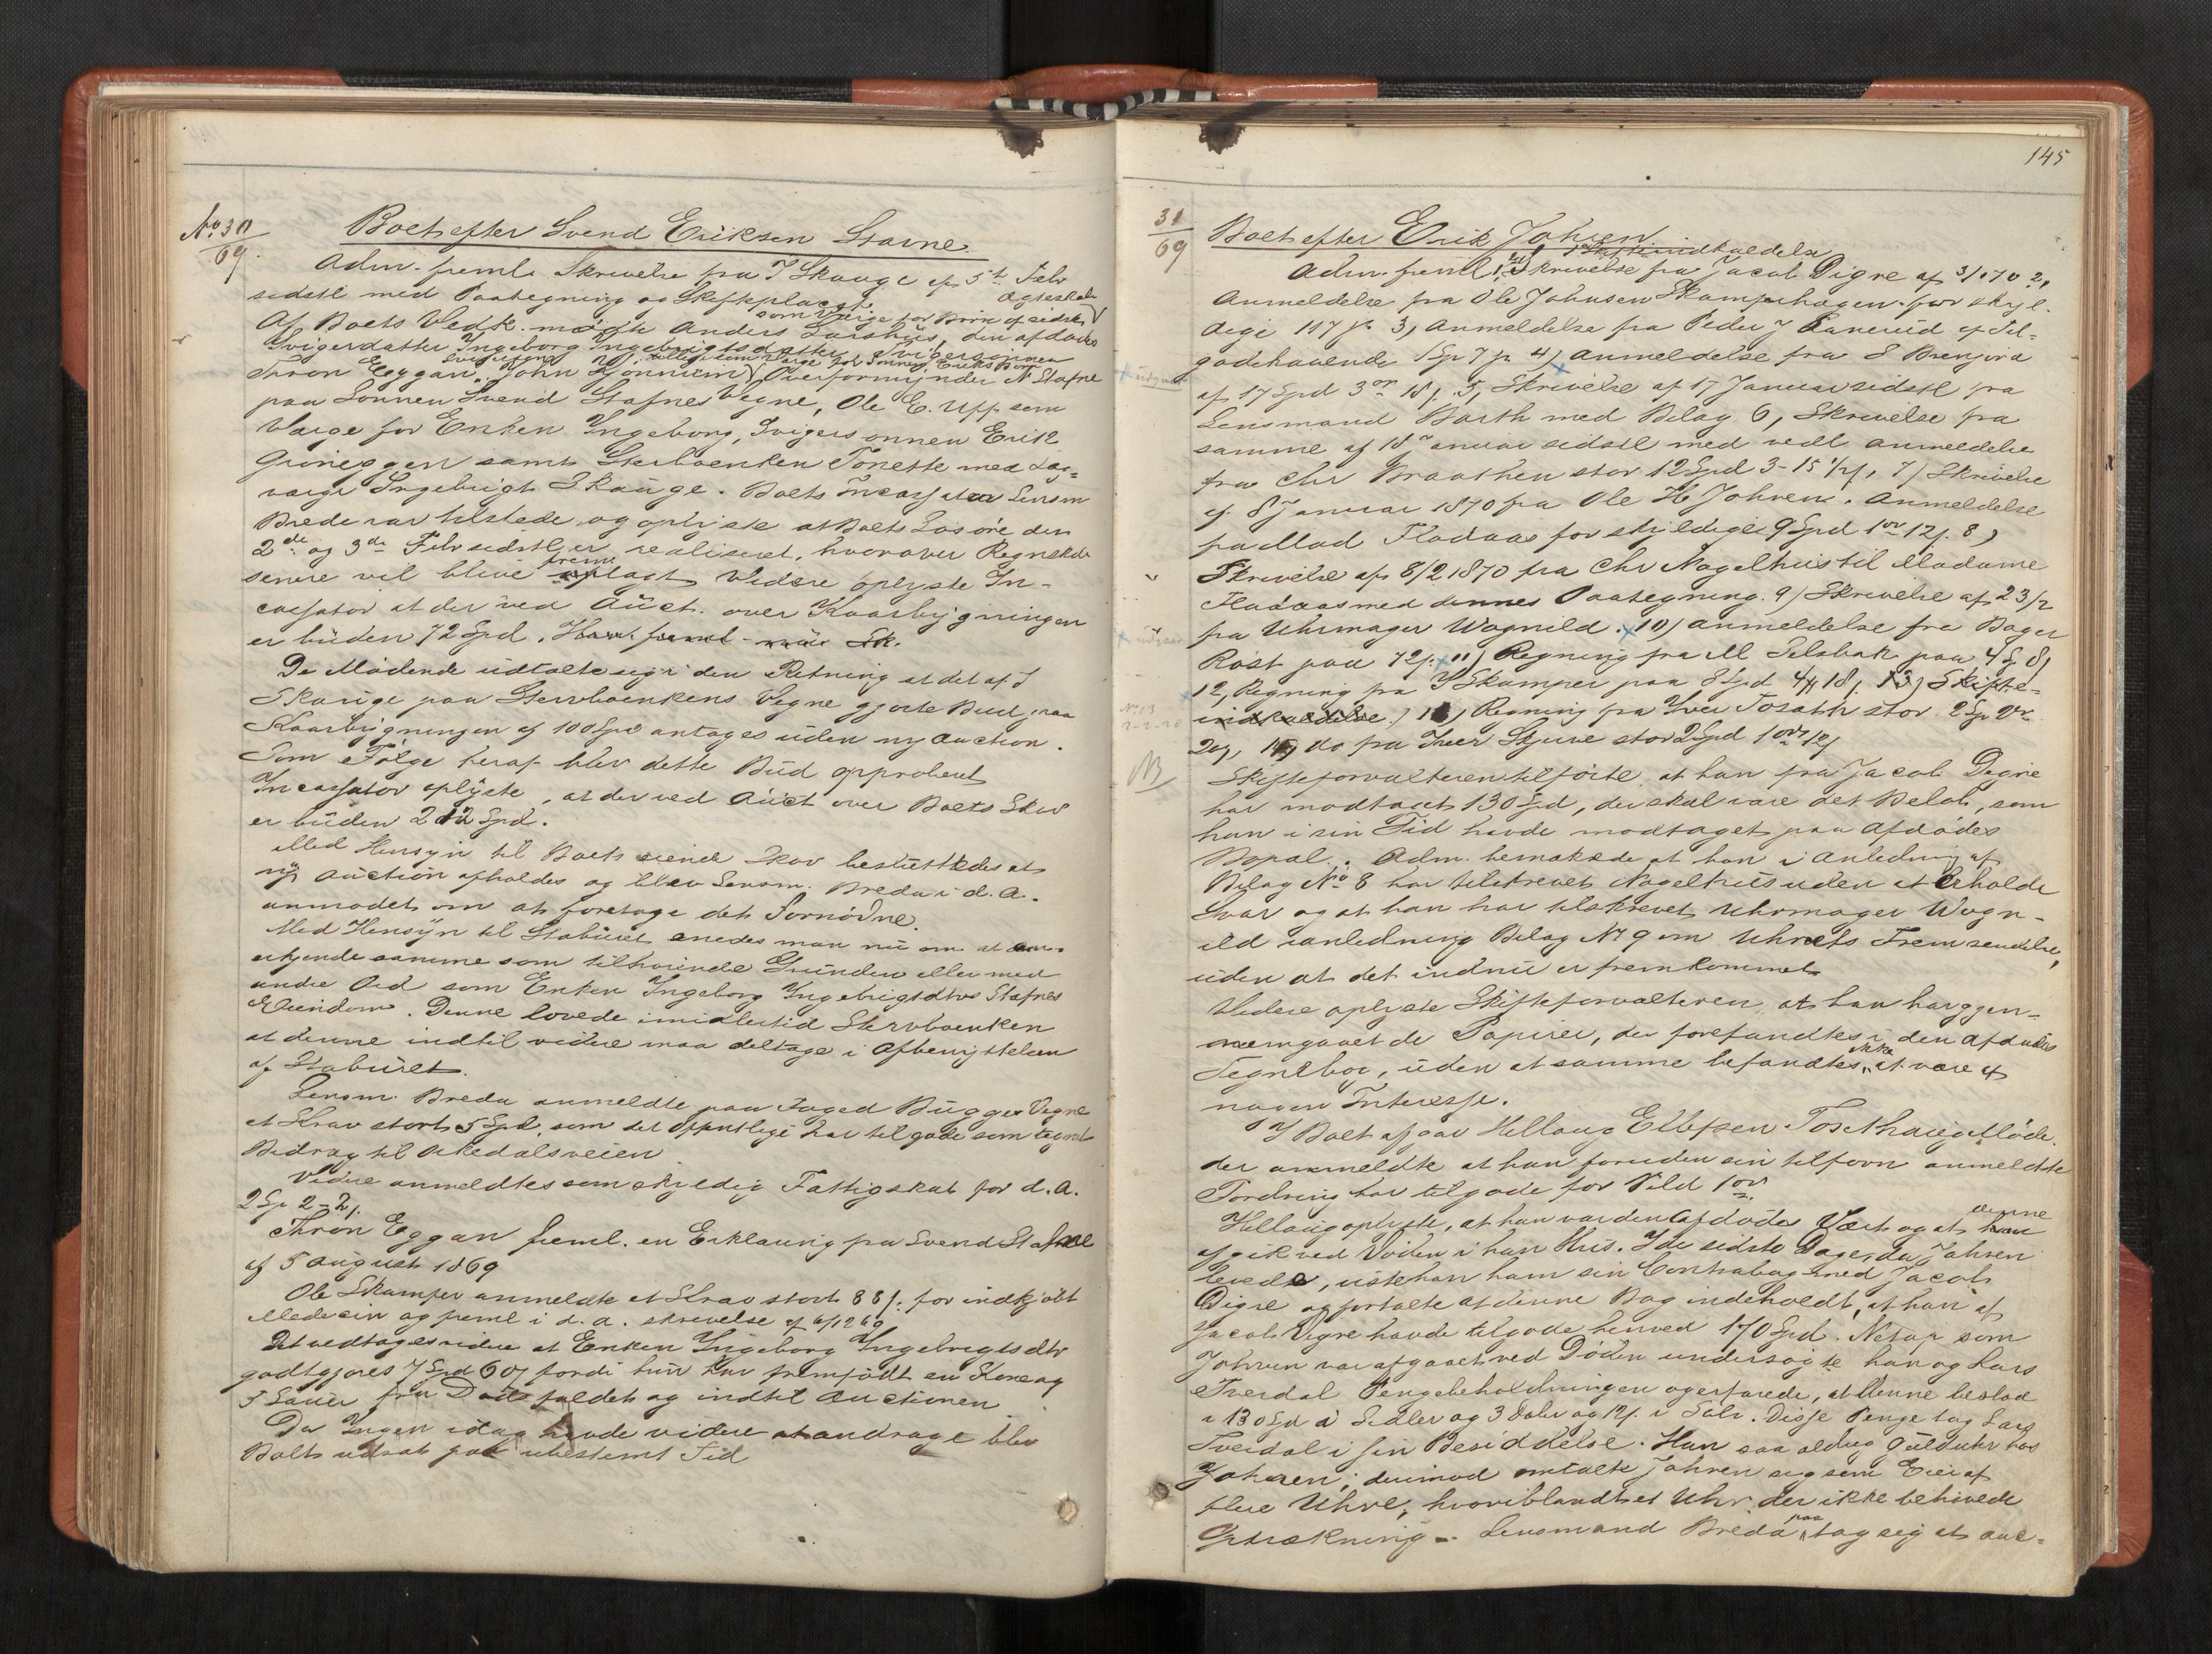 No 30
69.
Boet efter Svend Eriksen Stavne
Adm. freml. Skrivelse fra I Skauge af 5t Febr
sidstl med Paategning og Skifteplacat.
Af Boets Vedk. mødte Anders Larshus, den afdødes
som Værge for Børn af sidste Ægteskab
Svigerdatter Ingeborg Ingebrigtsdatter, Svigersønnen
Thron Eggan, Svigersøn John Hjønnum, tillige som Værge for Sønnen Eriks Børn, Overformynder N Stafne
paa Sønnen Svend Stafnes Vegne, Ole E. Uff som
Værge for Enken Ingeborg, Svigersønnen Erik
Grøneggen samt Stervboenken Tonette med Lag=
værge Ingebrigt Skauge. Boets Incassator Lensm
Breda var tilstede og oplyste at Boets Løsøre den
2de og 3de Febr sidstl er realiseret, hvorover Regnskab
senere vil blive fremlagt. Videre oplyste In-
cassator at der ved Auct. over Kaarbygningen
er buden 72 Spd.
De Mødende udtalte sig i den Retning at det af I
Skauge paa Stervboenkens Vegne gjorte Bud paa
Kaarbygningen af 100 Spd antages uden ny Auction.
Som Følge heraf blev dette Bud approberet
Incassator oplyste, at der ved Auct over Boets Skov
er buden 212 Spd.
Med Hensyn til Boets eiende Skov besluttedes at
ny Auction afholdes og blev Lensm. Breda i d. A.
anmodet om at foretage det Fornødne.
Med Hensyn til Staburet enedes man nu om at an-
erkjende samme som tilhørende Grunden eller med
andre Ord som Enken Ingeborg Ingebrigtsdtrs Stafnes
Eiendom. Denne lovede imidlertid Stervboenken
at denne indtil videre maa deltage i Afbenyttelsen
af Stabüret.
Lensm. Breda anmeldte paa Foged Bugges Vegne
et Krav stort 5 Spd, som det Offentlige har tilgode som tegnet
Bidrag til Orkedalsveien
Videre anmeldtes som skyldig Fattigskat for d. A.
2 Sp 2-2/.
Thron Eggan freml. en Erklæring fra Svend Stafne
af 5 August 1869
Ole Skamfer anmeldte et Krav stort 88/. for indkjøbt
Medecin og freml i d. A. skrivelse af 6/12 69
Det vedtages videre at Enken Ingeborg Ingebrigtsdtr
godtgjøres 7 Spd 60/ fordi hun har fremfødt en Ko og
5 Sauer fra Dødsfaldet og indtil Auctionen.
Da Ingen idag havde videre at andrage blev
Boets udsat paa ubestemt Tid
145
31
69
Boet efter Erik Johsen
Adm. freml. 1, Skrivelse fra Jacob Digre af 3/1 70 2,
Anmeldelse fra Ole Johnsen Skamferhagen for skyl-
dige 117 /. 3, Anmeldelse fra Peder J Lanerud af Til-
godehavende 1 Sp 7 /. 4, Anmeldelse fra S Brenjord
af 17 Spd 3 or 18/. 5, Skrivelse af 17 Januar sidstl fra
Lensmand Barth med Bilag 6, Skrivelse fra
samme af 18 Januar sidstl med vedl Anmeldelse
fra Chr Braathen stor 12 Spd 3-15 1/2/. 7, Skrivelse
af 8 Januar 1870 fra Ole H Johsen. Anmeldelse
fra Mad Fladaas for skyldige 9 Spd 1 or 12/. 8,
Skrivelse af 8/2 1870 fra Chr Nagelhus til Madame
Fladaas med dennes Paategning. 9, Skrivelse af 23/2
fra Uhrmager Wognild. 10, Anmeldelse fra Bager
Rost paa 72/. 11, Regning fra M Selsbak paa 4 8/
12, Regning fra I Skamfer paa 8 Spd 4 18/. 13, Skifte-
indkaldelse. Regning fra Iver Tosath stor 2 Sp 2 or
20/, do fra Iver Skjuve stor 2 Spd 1 or 12/
NB
Skifteforvalteren tilførte at han fra Jacob Digre
har modtaget 130 Spd, der skal være det Beløb, som
han i sin Tid havde modtaget paa Afdødes
Bopæl. Adm. bemærkede at han i Anledning af
Bilag No 8 har tilskrevet Nagelhus uden at erholde
Svar og at han har tilskrevet Uhrmager Wogn-
ild i anledning Bilag No 9 om Uhrets Fremsendelse,
uden at det indnu er fremkommet
Videre oplyste Skifteforvalteren, at han har gjen-
nemgaaet de Papirer, der forefandtes i den Afdødes
Tegnebog, uden at samme befandtes ikke at være af
nogen Interesse.
I Boet afgav Hellaug Ellefsen Tosethaug Møde.
der anmeldte at han foruden sin tilforn anmeldte
Fordring har tilgode for Vild 1 or
Hellaug oplyste, at han var den Afdødes Vært og at denne
afgik ved Døden i hans Hus. I de sidste Dage, da Johsen
levede, viste han ham sin Contrabog med Jacob
Digre og fortalte at denne Bog indeholdt, at han af
Jacob Digre havde tilgode henved 170 Spd. Netop som
Johsen var afgaaet ved Døden undersøgte han og Lars
Tverdal Pengebeholdningen og erfarede, at denne bestod
i 130 Spd i Sedler og 3 Daler og 12/. i Sølv. Disse Penge tog Lars
Tverdal i sin Besiddelse. Han saa aldrig Gulduhr hos
Johsen; derimod omtalte Johsen sig som Eier af
flere Uhre, hvoriblandt et Uhr der ikke behøvede
Optrækning. Lensmand Breda paatog sig at auc-